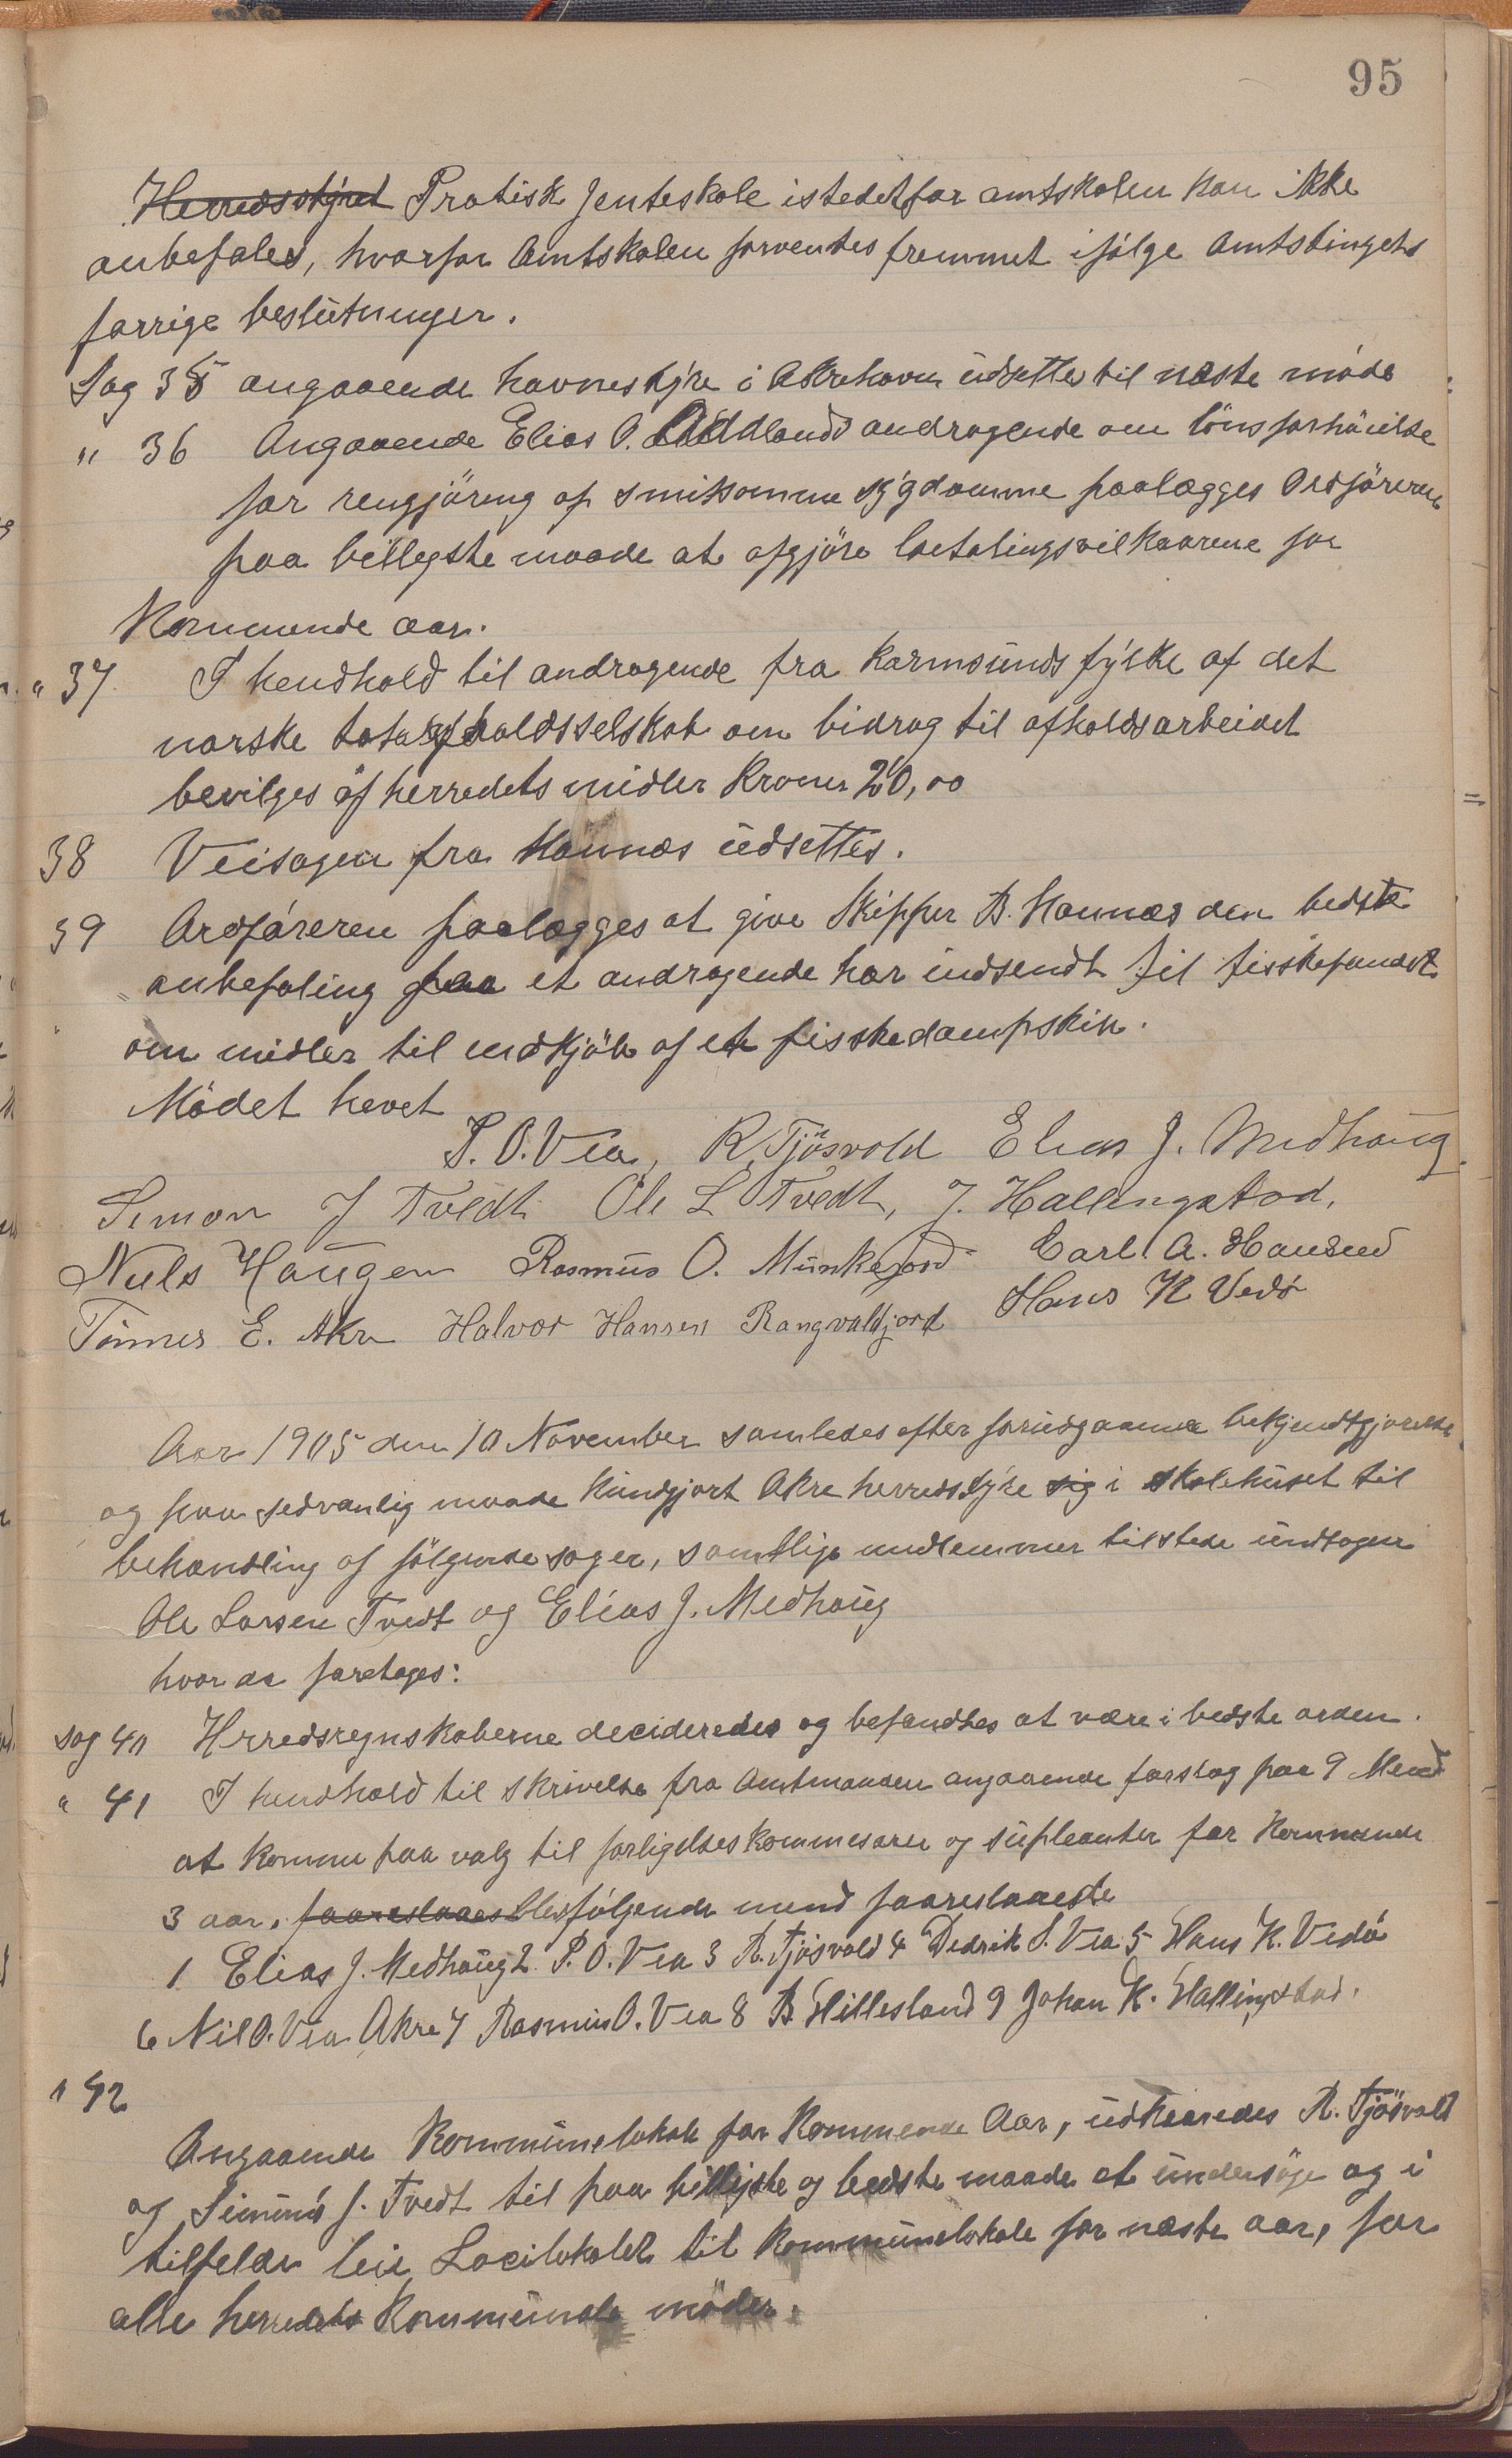 95
Herredsstyret Pratisk Jenteskole istedetfor amtskolen kan ikke
anbefales, hvorfor Amtskolen forventes fremmet ifölge Amtstingets
forrige beslutninger.
Sag 35 angaaende havnestyre i Akrehavn udsettes til næste möde
" 36 Angaaende Elias O. Ådlands andragende om lönsforhöielse
for rengjöring af smitsomme sygdomme paalægges Ordföreren
paa billigste maade at afgjöre betalingsvilkaarene for
Kommende aar.
" 37 I hendhold til andragende fra Karmsunds fylke af det
norske totalafholdsselskab om bidrag til afholdsarbeidet
bevilges af herredets midler Kroner 20,00
38 Veisagen fra Hounæs udsettes.
39 Ordföreren paalægges at give Skipper B. Hounæs den bedste
anbefaling paa et andragende har indsendt til fiskefondet
om midler til indkjöb af et fisskedampskib.
Mödet hevet
P. O. Vea, R. Tjösvold Elias J. Medhaug
Simon J Tvedt Ole L Tvedt, J. Hallingstad,
Nils Haugen Rasmus O. Munkejord Carl. A. Hansen
Tönnes E. Akre Halvor Hansen Rangvaldjord Hans K Vedö
Aar 1905 den 10 November samledes efter forudgaaende bekjendtgjörelse
og paa sedvanlig maade kundgjort Akre herredsstyre sig i skolehuset til
behandling af fölgende sager, samtlige medlemmer tilstede undtagen
Ole Larsen Tvedt og Elias J. Medhaug
hvor da foretoges:
Sag 40 Herredsregnskaberne decideredes og befandtes at være i bedste orden.
" 41 I hendhold til skrivelse fra Amtmanden angaaende forslag paa 9 Mend
at komme paa valg til forligelseskommesærer og supleanter for kommende
3 aar, faareslaaes blev fölgende mend faareslaaede
1 Elias J. Medhaug 2 P. O. Vea 3 R. Tjösvold 4 Didrik S. Vea 5 Hans K. Vedö
6 Nil O. Vea Akre 7 Rasmus O. Vea 8 B. Hillesland 9 Johan K. Hallingstad.
" 42
Angaaende Kommunelokale for Kommende Aar, udkaaredes R. Tjösvold
og Simon J. Tvedt til paa billigste og bedste maade at undersöge og i
tilfelde leie Locilokalet til Kommunelokale for næste aar, for
alle herredets Kommunale möder.